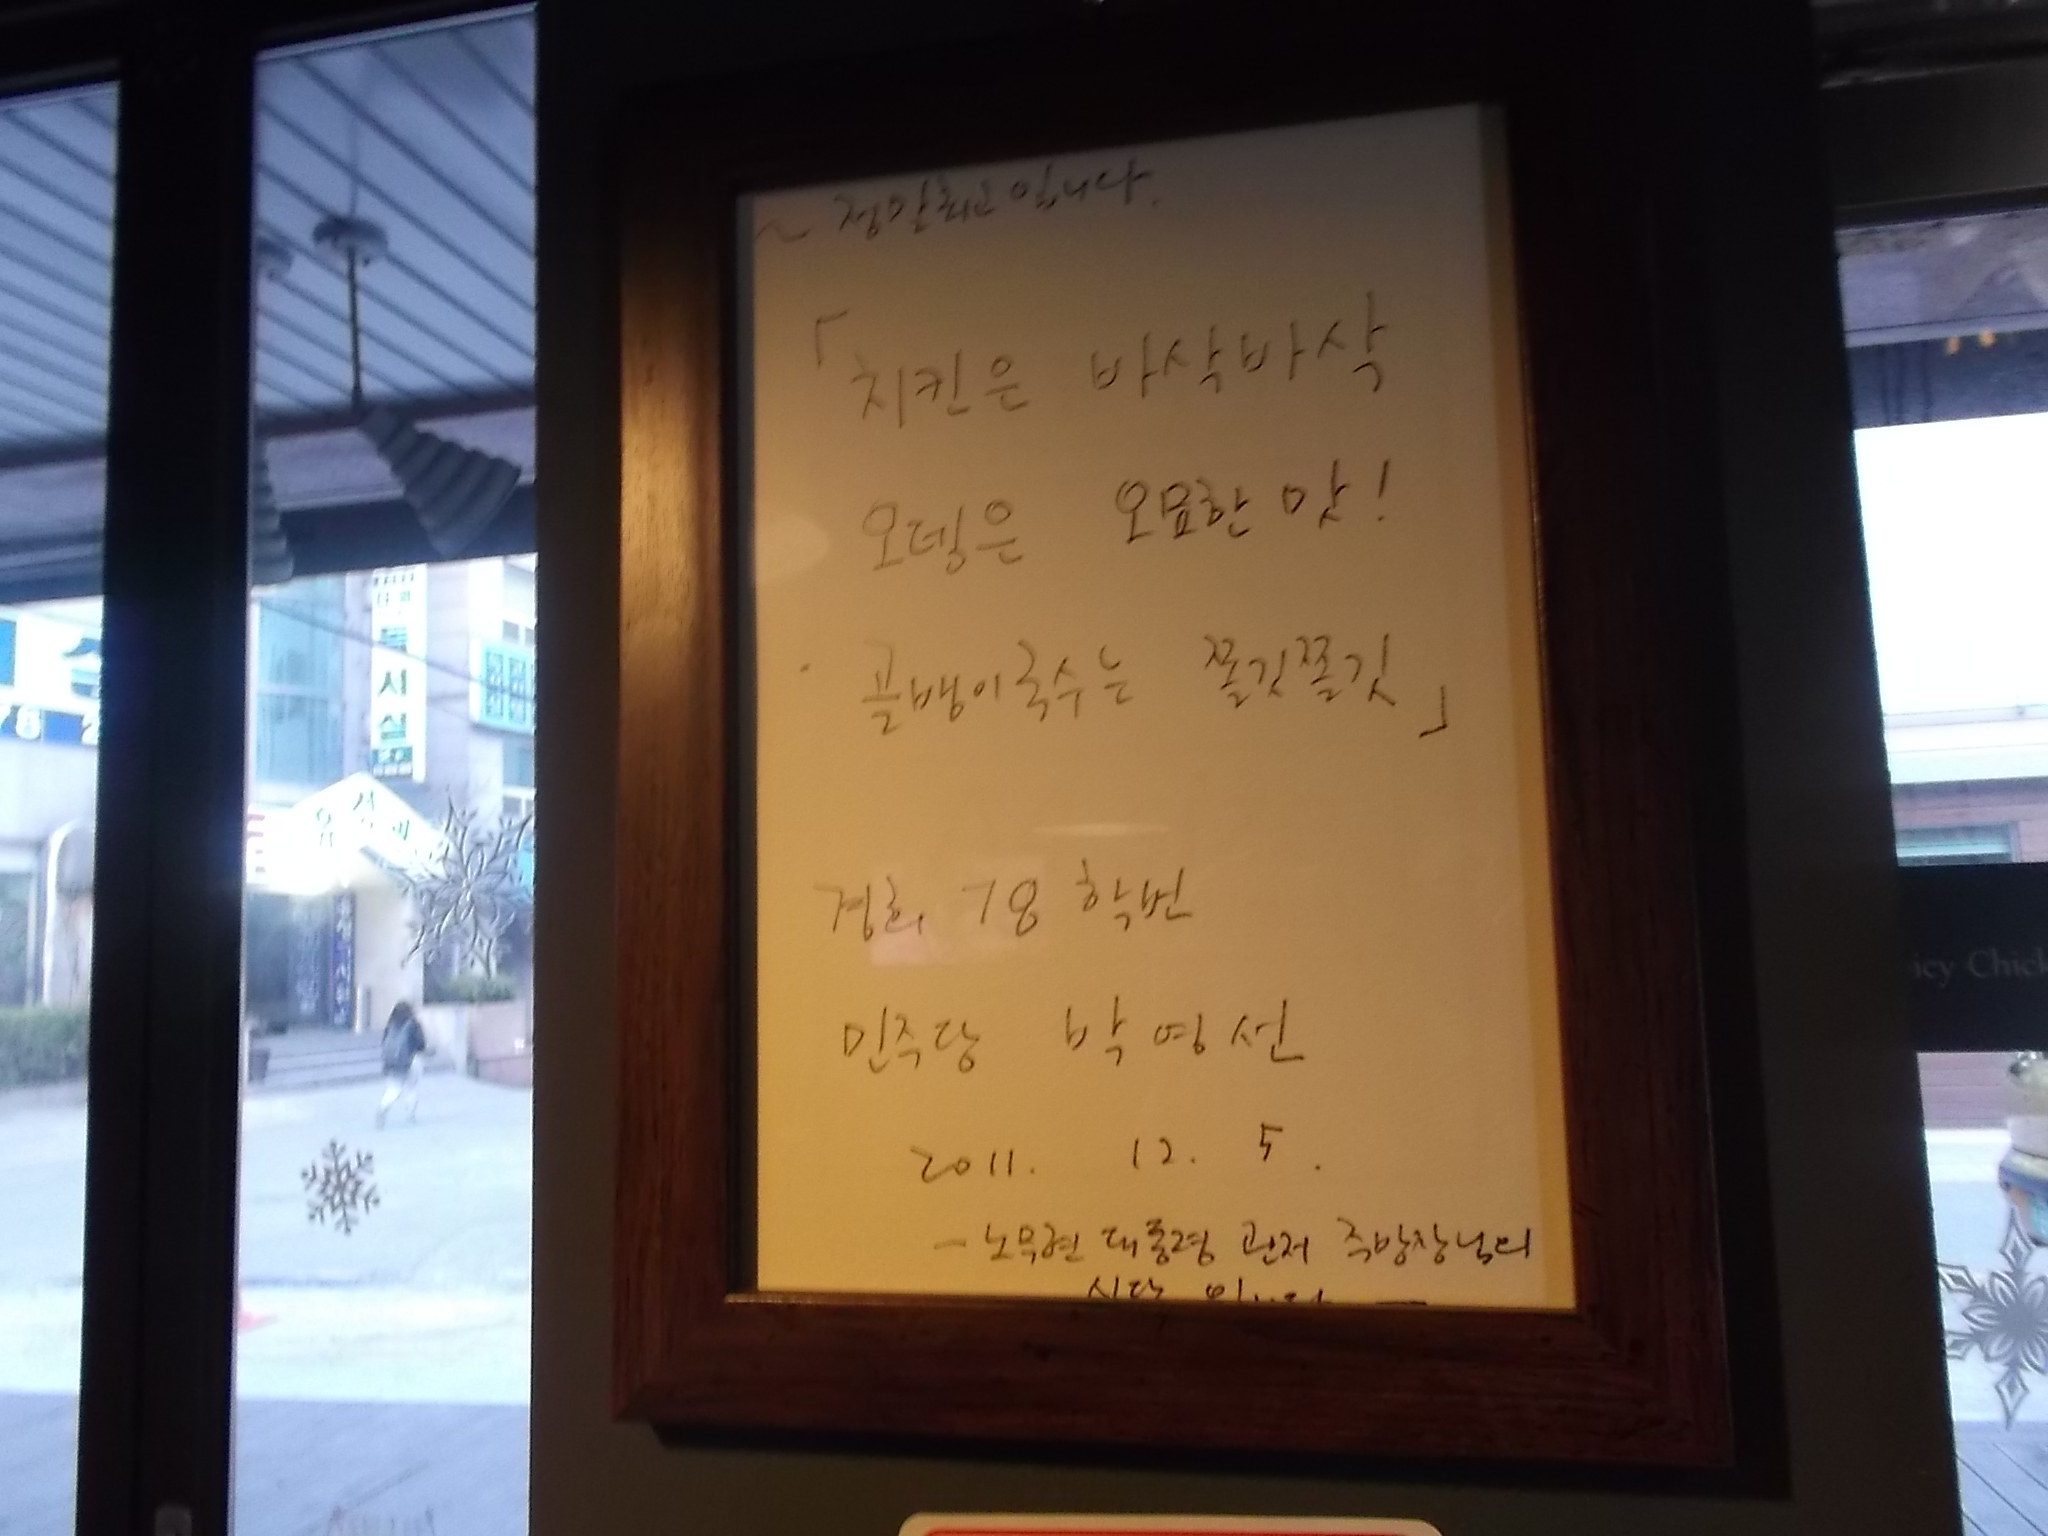 ~ 정말 최고입니다.
「치킨은 바삭바삭
오뎅은 오묘한 맛!
골뱅이국수는 쫄깃쫄깃」
경희 78 학번
민주당 박영선
2011. 12. 5.
- 노무현 대통령 관저 주방장님의
식당 입니다 -
독서실
icy Chick